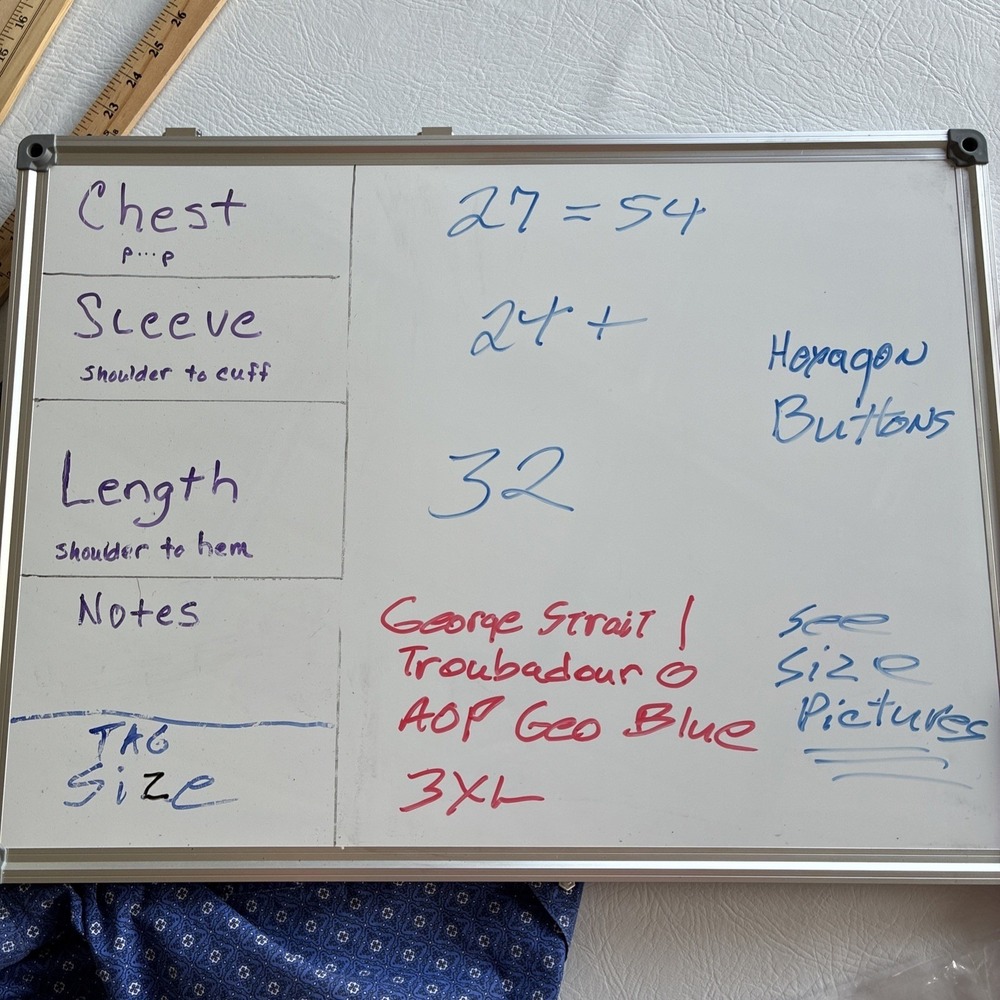 Chest
p...p
27 = 54
Sleeve
shoulder to cuff
24 +
Hexagon
Buttons
Length
shoulder to hem
32
Notes
George Strait |
Troubadour O
AOP Geo Blue
See
Size
Pictures
TAG
Size
3XL
16
16
23
24
25
26